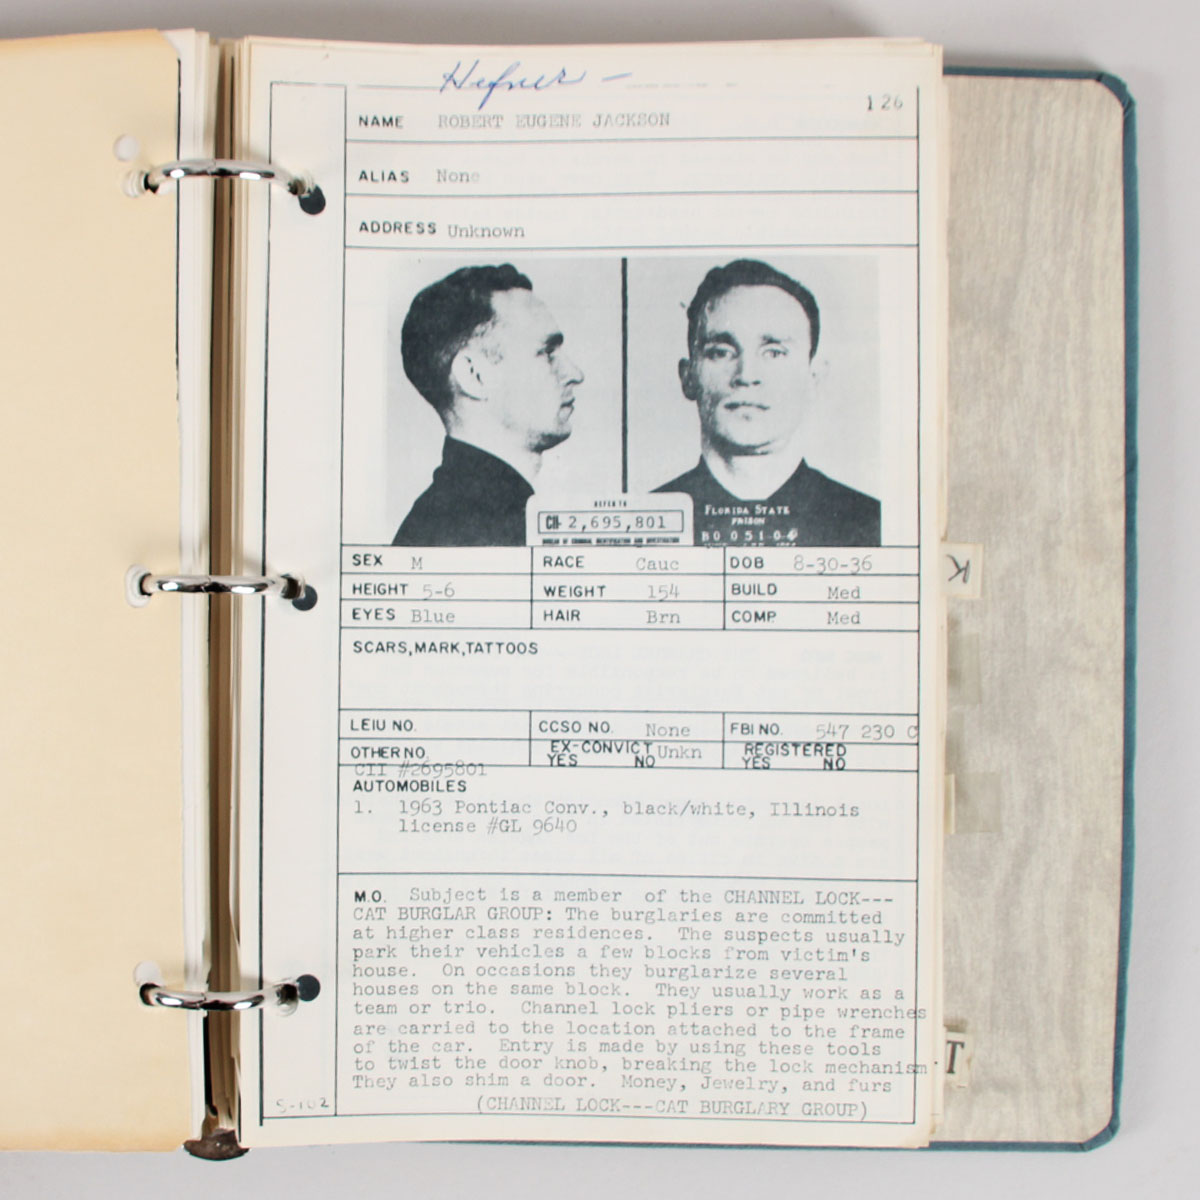 Hefner —
126
NAME ROBERT EUGENE JACKSON
ALIAS None
ADDRESS Unknown
REFER TO
CII- 2,695,801
BUREAU OF CRIMINAL IDENTIFICATION AND INVESTIGATION
FLORIDA STATE
PRISON
SEX M RACE Cauc DOB 8-30-36
HEIGHT 5-6 WEIGHT 154 BUILD Med
EYES Blue HAIR Brn COMP. Med
SCARS,MARK,TATTOOS
LEIU NO. CCSO NO. None FBI NO. 547 230 C
OTHER NO. EX-CONVICT Unkn REGISTERED
YES NO YES NO
CII #2695801
AUTOMOBILES
1. 1963 Pontiac Conv., black/white, Illinois
license #GL 9640
M.O. Subject is a member of the CHANNEL LOCK---
CAT BURGLAR GROUP: The burglaries are committed
at higher class residences. The suspects usually
park their vehicles a few blocks from victim's
house. On occasions they burglarize several
houses on the same block. They usually work as a
team or trio. Channel lock pliers or pipe wrenches
are carried to the location attached to the frame
of the car. Entry is made by using these tools
to twist the door knob, breaking the lock mechanism.
They also shim a door. Money, Jewelry, and furs
(CHANNEL LOCK---CAT BURGLARY GROUP)
S-102
K
T